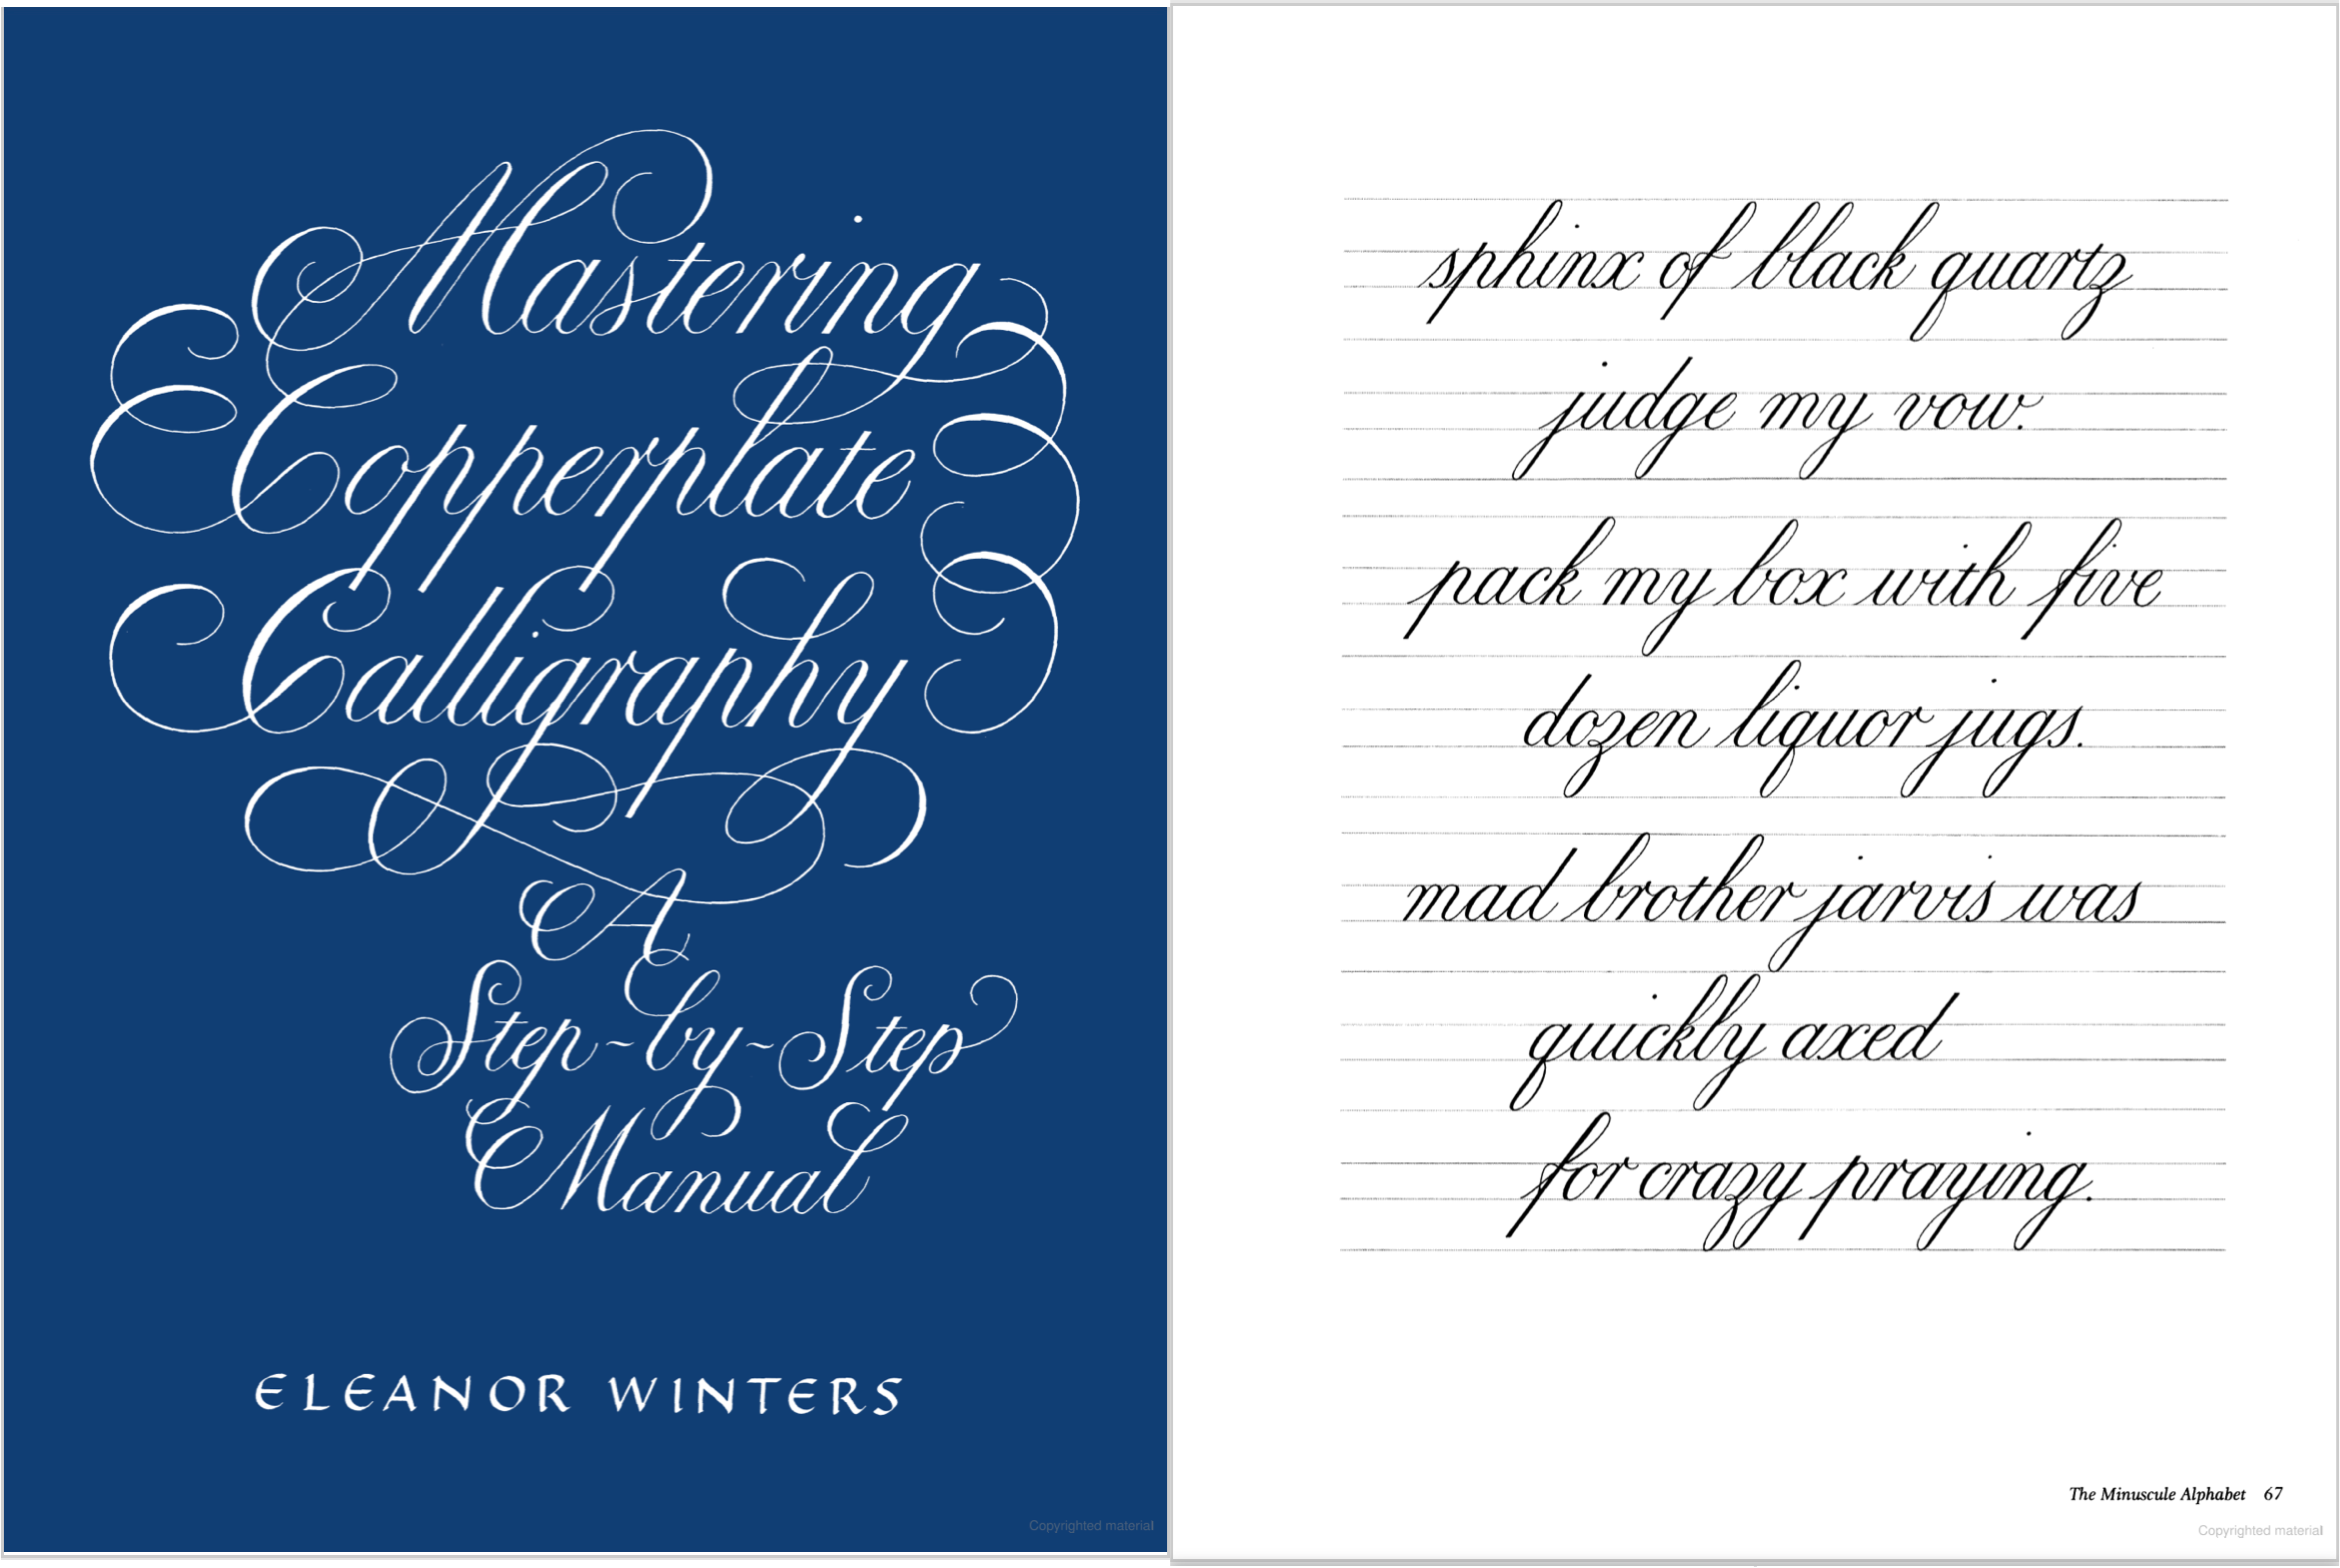 Mastering
Copperplate
Calligraphy
A
Step-by-Step
Manual
ELEANOR WINTERS
Copyrighted material
sphinx of black quartz
judge my vow.
pack my box with five
dozen liquor jugs.
mad brother jarvis was
quickly axed
for crazy praying.
The Minuscule Alphabet 67
Copyrighted material